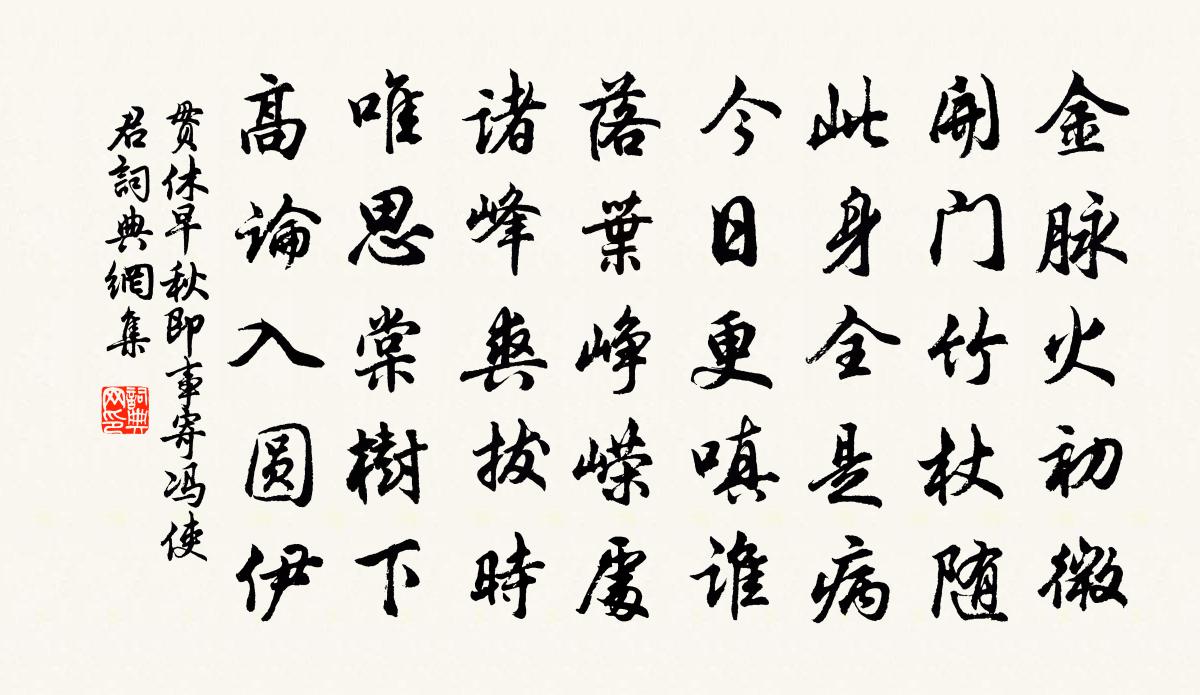 金脉火初微
開门竹杖随
此身全是病
今日更嗔谁
落葉峥嵘處
诸峰爽拔時
唯思棠樹下
高論入圆伊
贯休早秋即事寄冯使
君詞典網集
詞典
网印